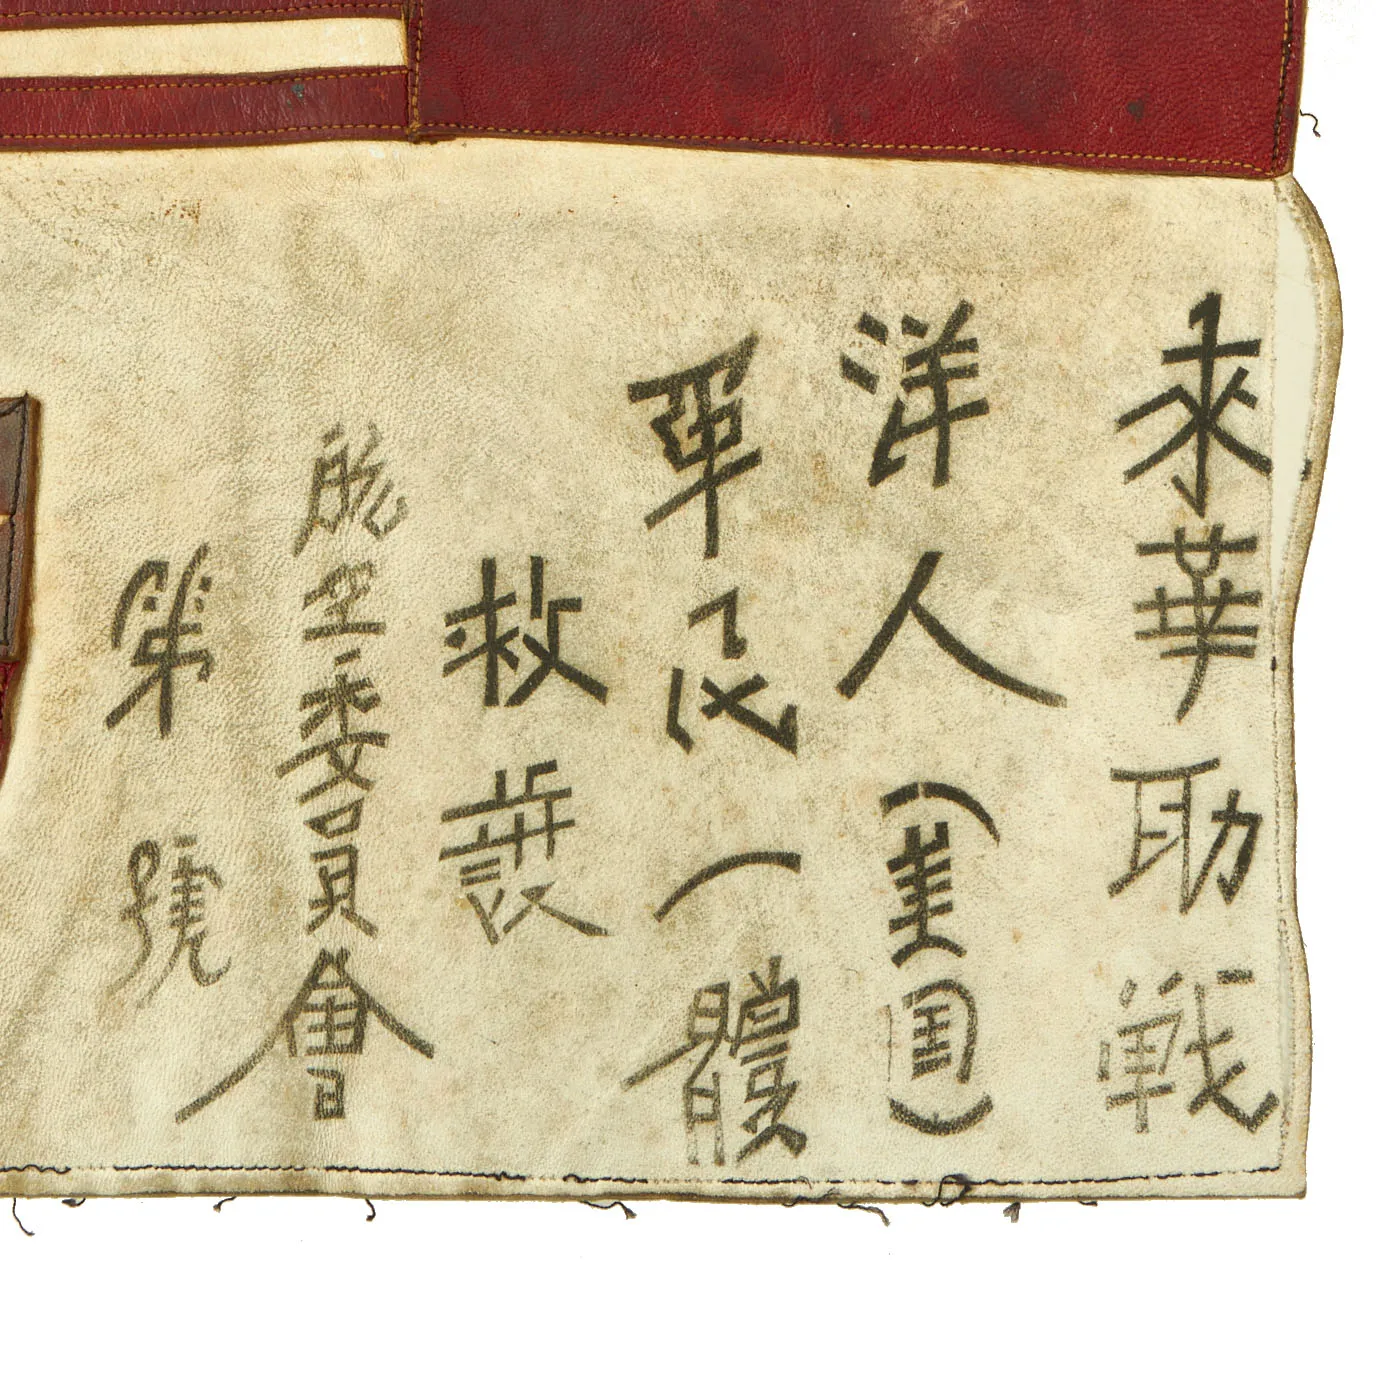 來華助戰
洋人(美国)
軍民一體
救護
航空委員會
第
號